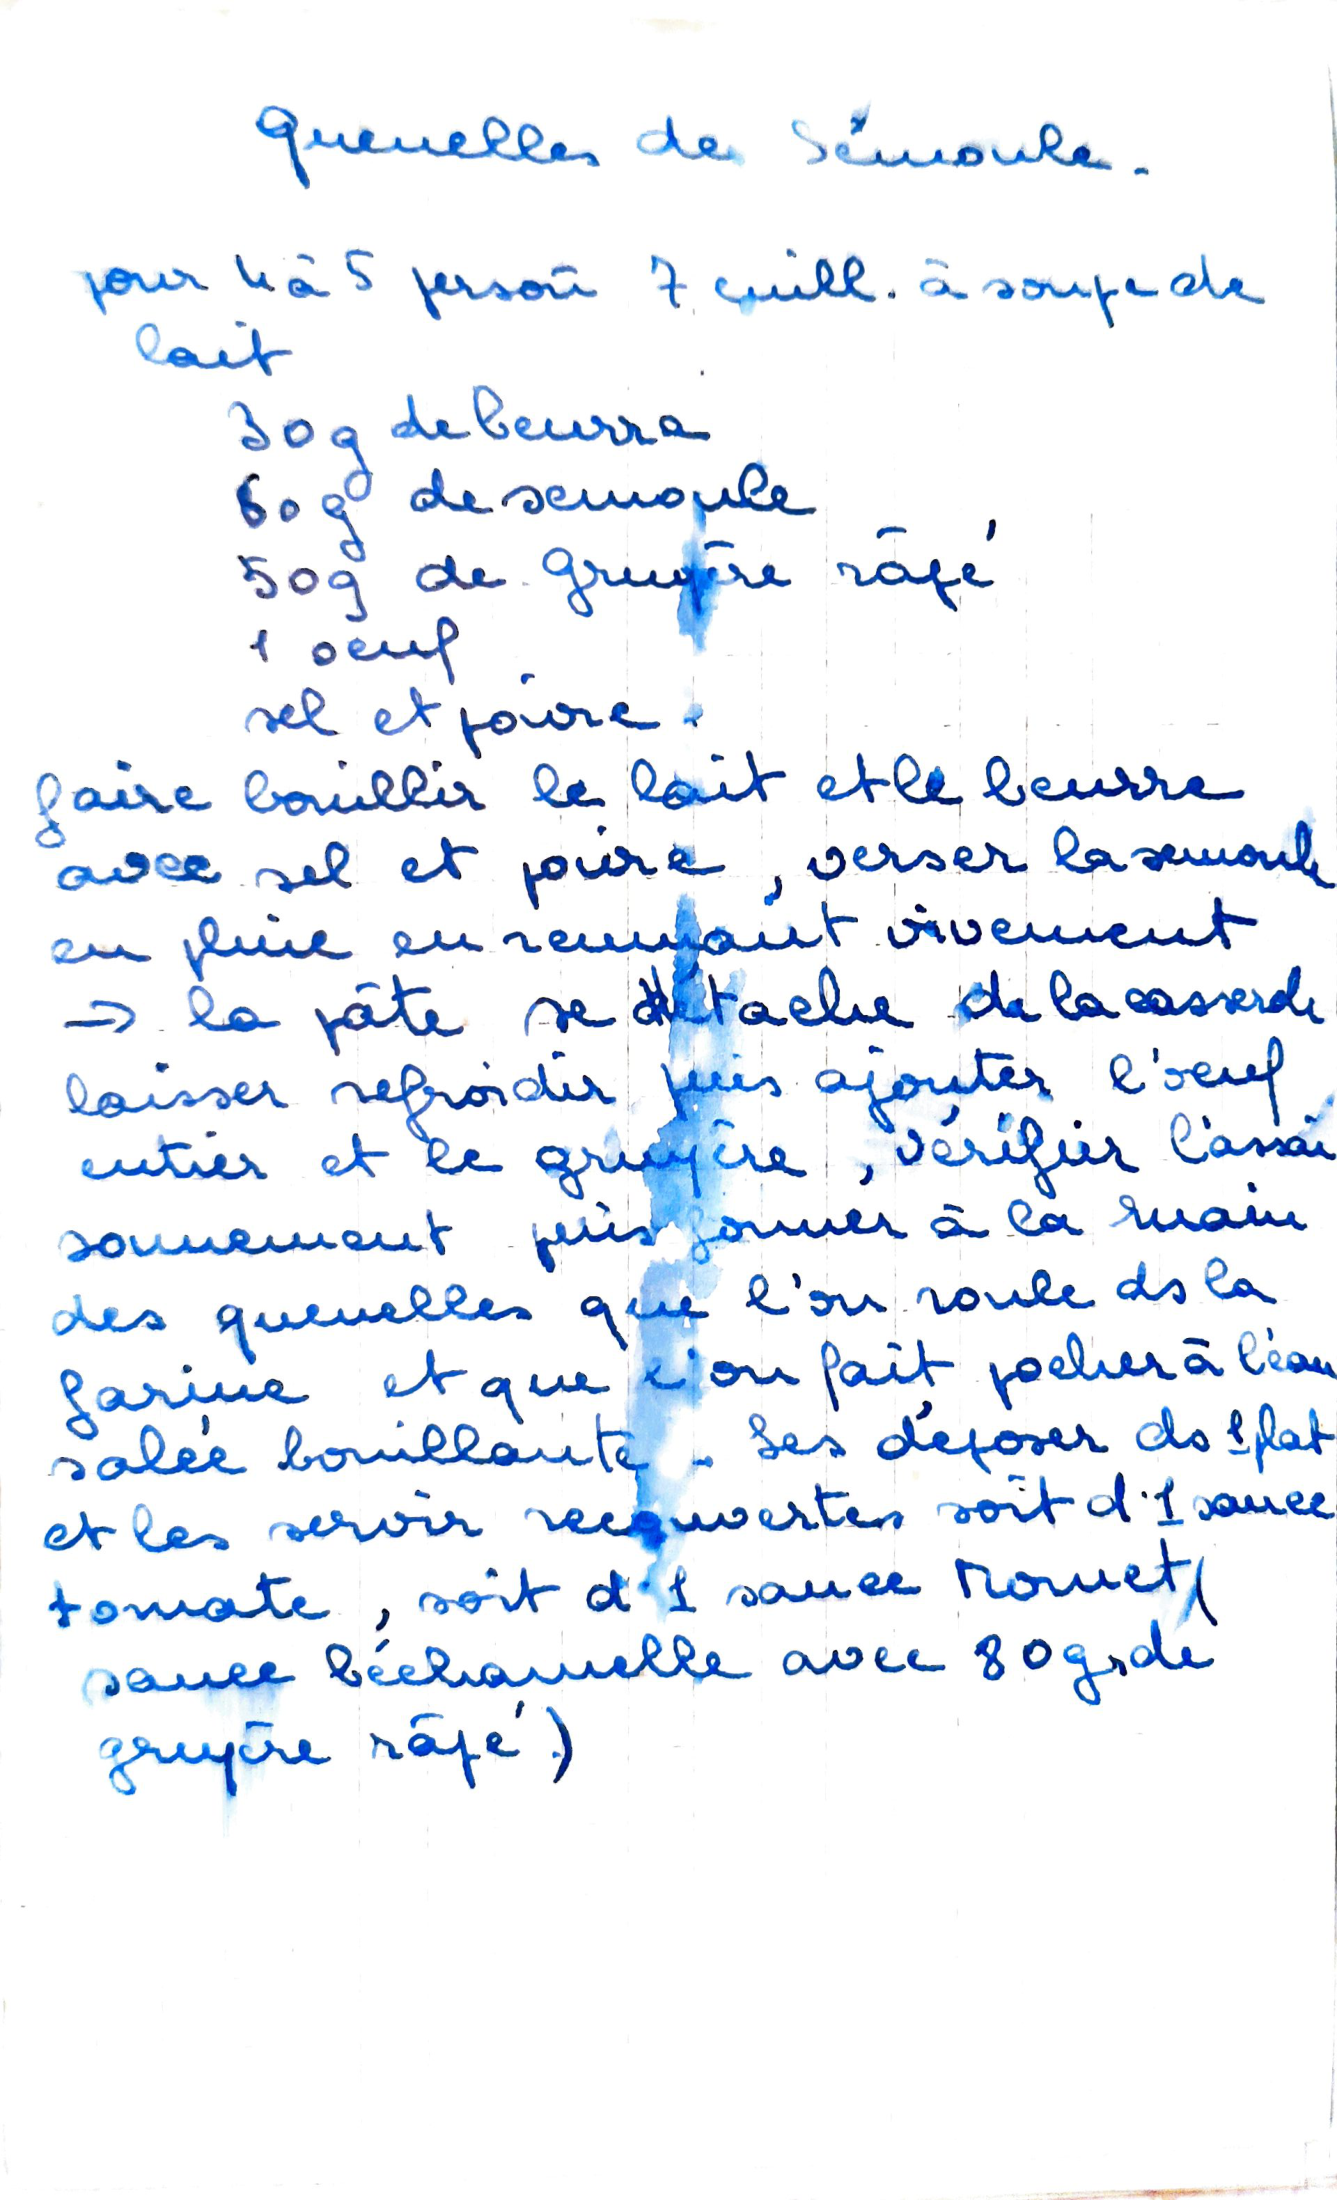 Quenelles de Sémoule.
pour 4 à 5 person 7 cuill. à soupe de
lait
30g de beurre
60g de semoule
50g de gruyère râpé
1 oeuf
sel et poivre.
faire bouillir le lait et le beurre
avec sel et poivre, verser la semoule
en pluie en remuant vivement
→ la pâte se détache de la casserole
laisser refroidir puis ajouter l'oeuf
entier et le gruyère, vérifier l'assai
sonnement puis former à la main
des quenelles que l'on roule ds la
farine et que l'on fait pocher à l'eau
salée bouillante. Les déposer ds 1 plat
et les servir recouvertes soit d'1 sauce
tomate, soit d'1 sauce Mornet (
sauce béchamelle avec 80g de
gruyère râpé)